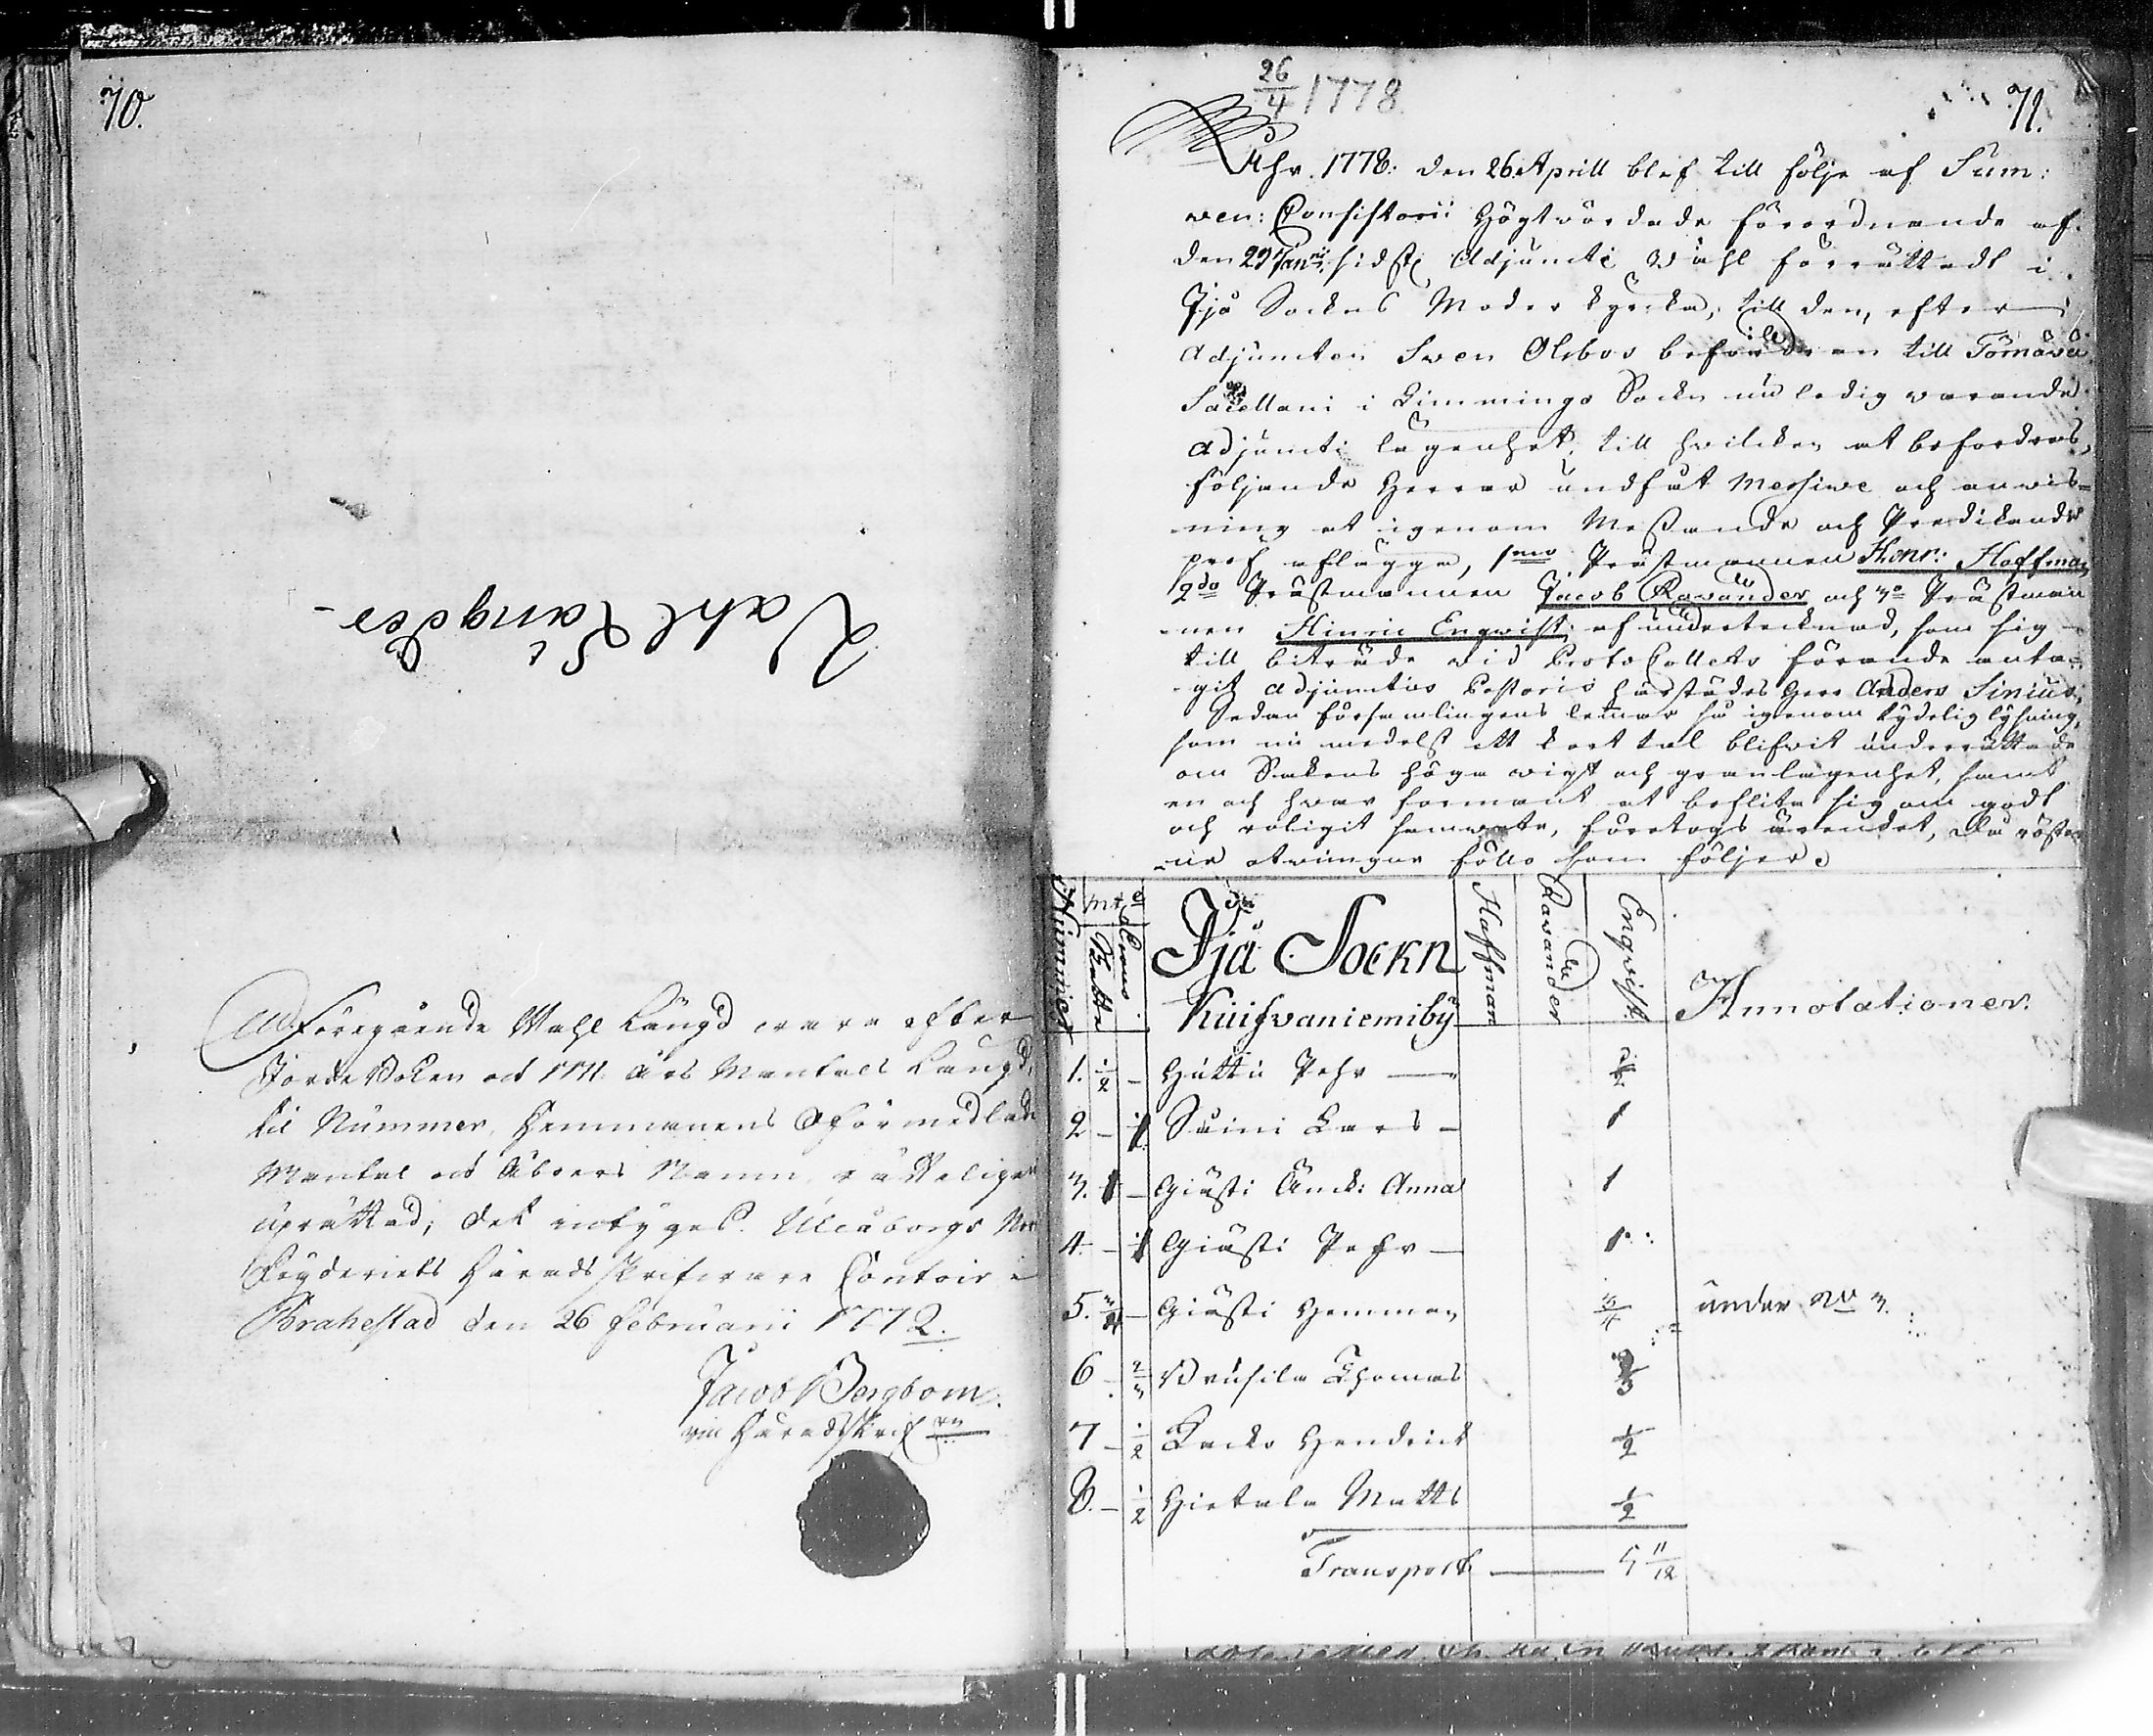 70.
Vahl Längder
At Föregående Wahl Längd vara efter
Jorde Boken och 1771 års Mantals Längd,
til Nummer, Hemmanens Oförmedlade
Mantal och Åboers Namn, rätteligen
uprättad; det intygas. Uleåborgs
Fögderiets Härads Skrifware Contoir i
Brahestad den 26 Februarii 1772.
Jacob Bergbom.
vice Häradsskrif
26/4 1778
71.
Åhr 1778: den 26 Aprill blef till följe af Sum:
ven: Consistorii Högtvördade förordnande af
den 29 Janrii sidst, Adjuncti Wahl förrättadt i
Ijå Sockns Moder kyrka, till den, efter
Adjuncten Sven Olsbos befordran till Tömävä
Sacellani i Limmingo Sockn nu ledig varande
Adjuncti lägenhet, till hvilken at befordras,
följande Herrar undfåt Messiwe och anvis-
ning at igenom Messande och Predikande
prof aflägga, 1mo Prästmannen Henr: Hoffman,
2do Prästmannen Jacob Ravander och 3o Prästman
nen Hinric Enqvist; af undertecknad, som sig
till biträde vid ProtoCollets förande anta-
git Adjunctus Pastoris härstädes Herr Anders Sinius,
Sedan församlingens lemar så igenom tydelig lysning,
som nu medelst ett kort tal blifvit underrättade
om Sakens höga vigt och granlagenhet, samt
en och hvar förmant at beflita sig om godt
och roligit samvete, företogs ärendet, då röster
ne otvungne föllo som följer.
Nummer
Mt
Skatte
Crono
Ijå Sockn
Kuifvaniemi by
Haffman
Ravander
Enqvist
Annotationer.
1. 1/2 - Hutti Pehr — 1/2
2 - 1 Suini Lars - 1
3. 1 - Giusti Änck: Anna 1
4. - 1 Giusti Pehr — 1
5. 3/4 - Giusti Hemman 3/4 under No 3.
6 - 2/3 Thomas 2/3
7 - 1/2 Hendrick 1/2
8. - 1/2 Hietala Matts 1/2
Transport — 5 11/12